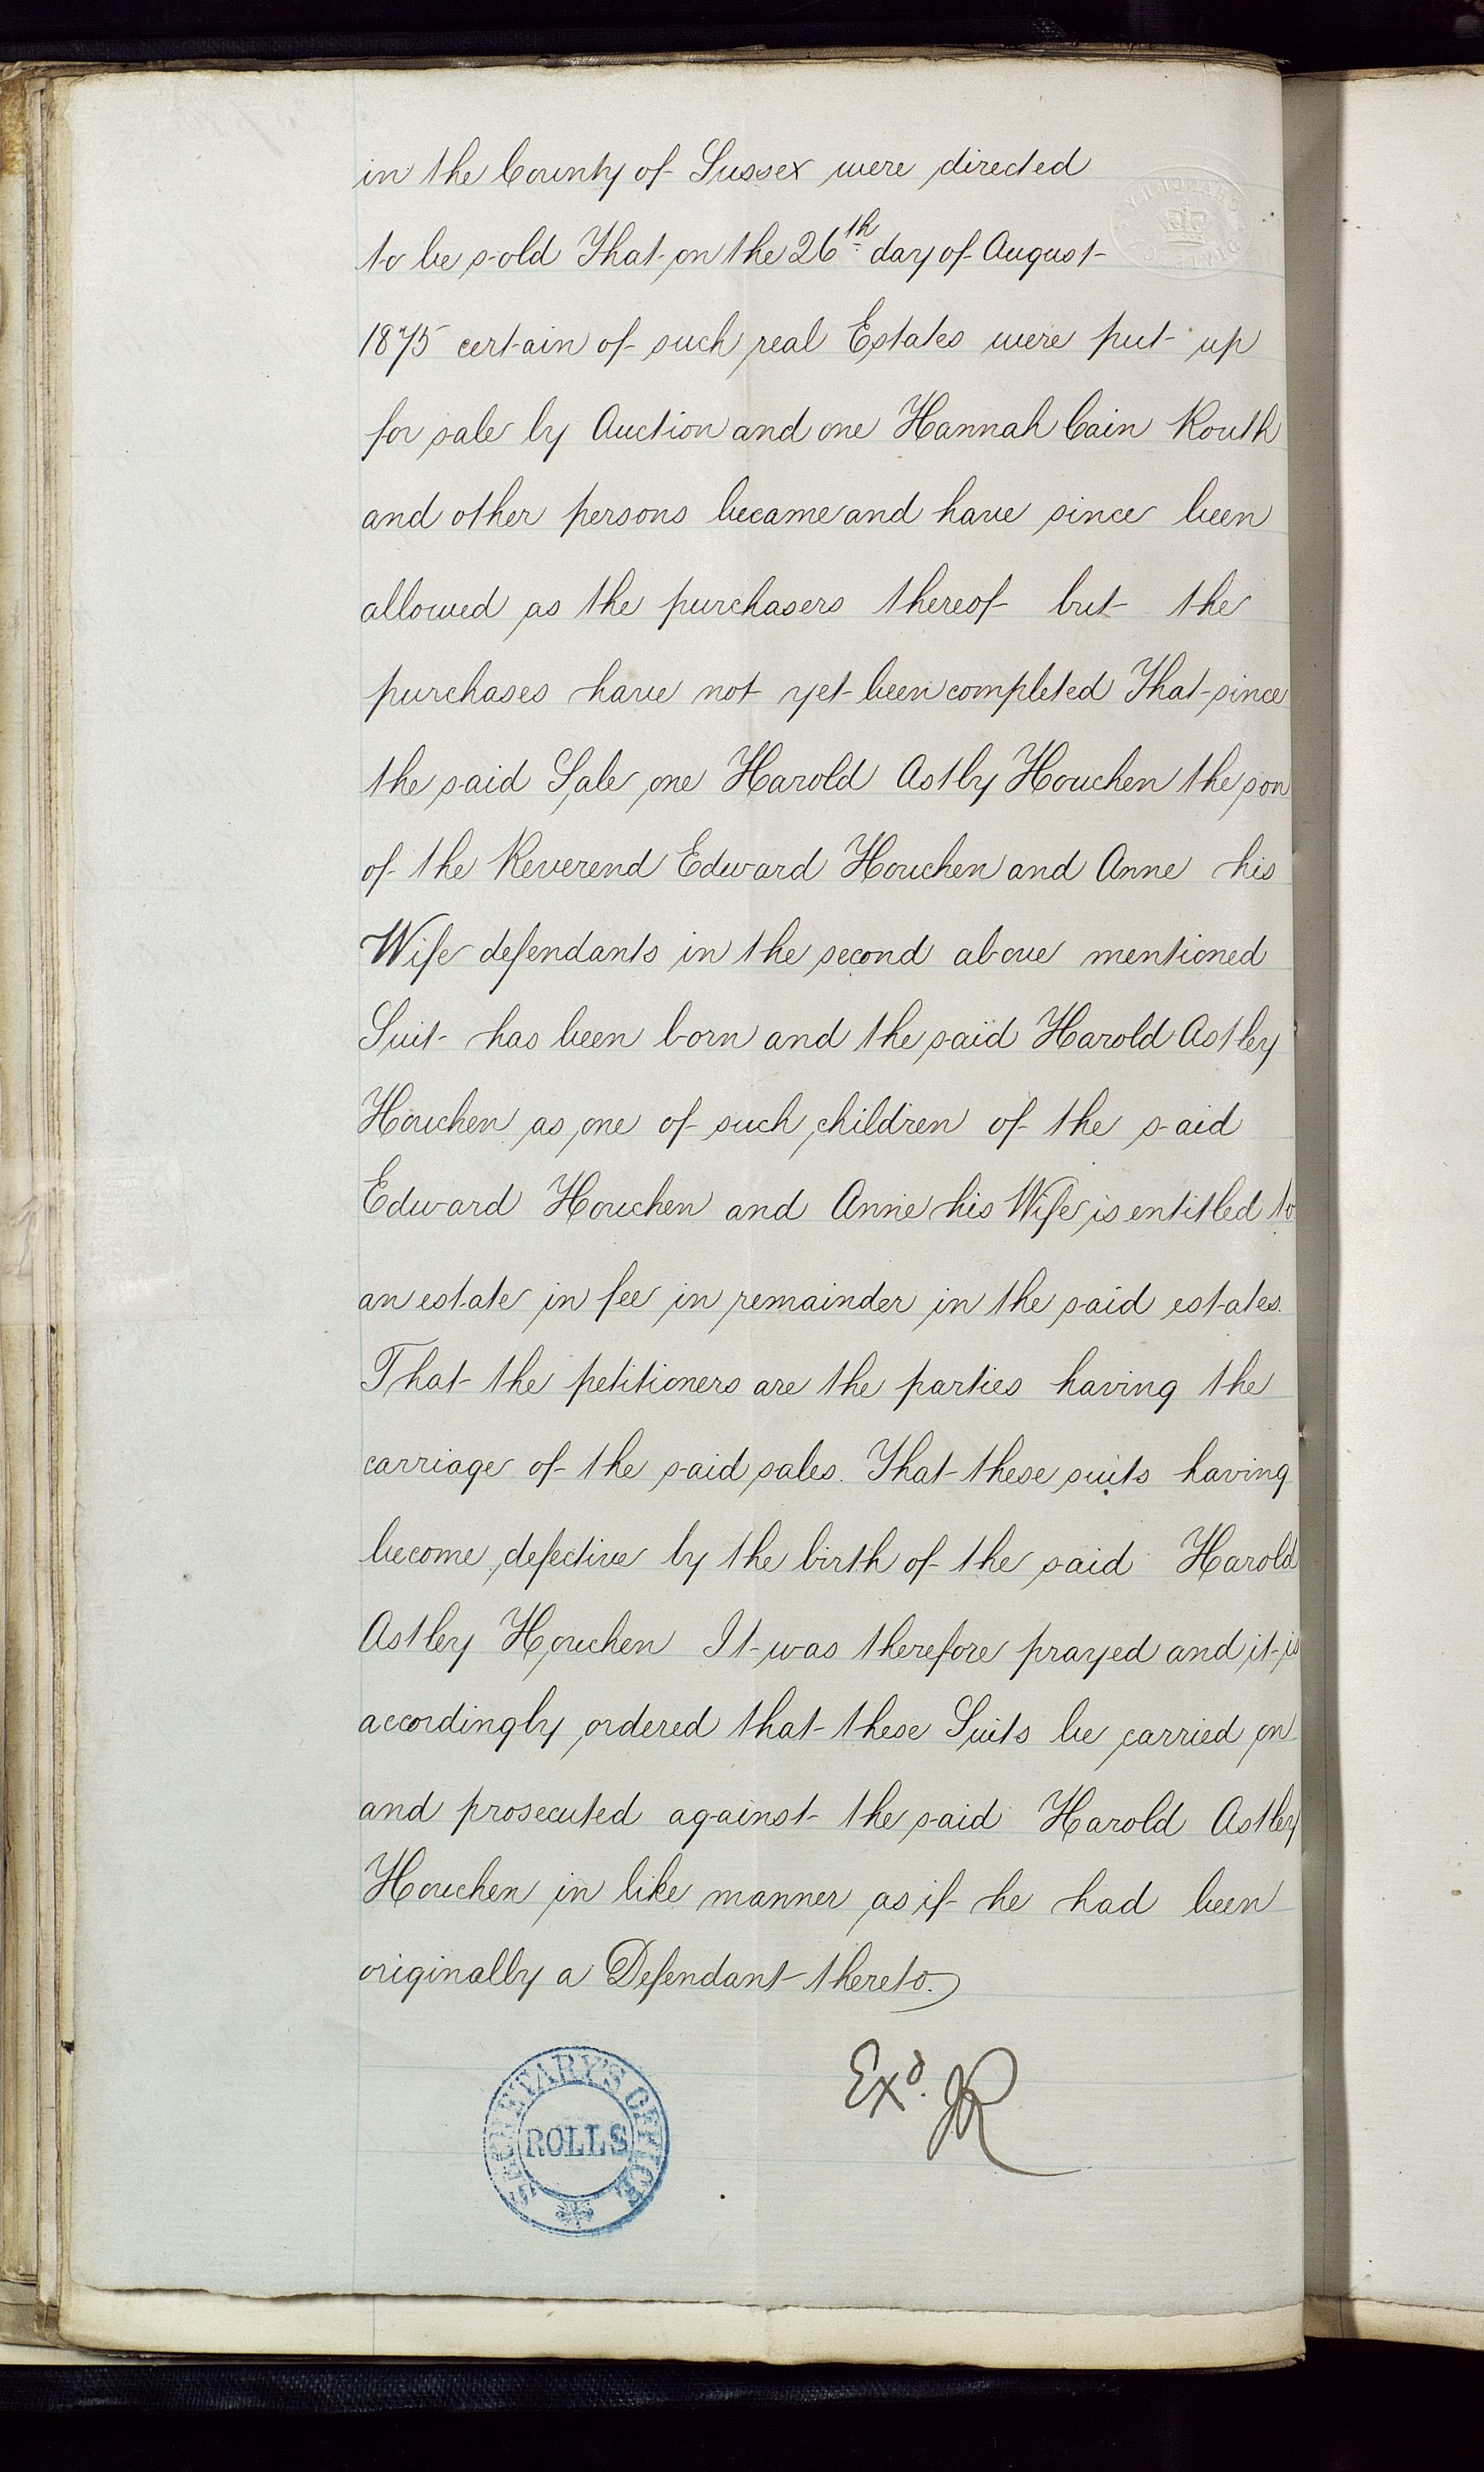 in the County of Sussex were directed
to be sold That on the 26th day of August
1875 certain of such real Estates were put up
for sale by Auction and one Hannah Cain Routh
and other persons became and have since been
allowed as the purchasers thereof but the
purchases have not yet been completed That since
the said Sale one Harold Astly Houchen the son
of the Reverend Edward Houchen and Anne his
Wife defendants in the second above mentioned
Suit has been born and the said Harold Astley
Houchen as one of such children of the said
Edward Houchen and Anne his Wife is entitled to
an estate in fee in remainder in the said estates.
That the petitioners are the parties having the
carriage of the said sales. That these suits having
become defective by the birth of the said Harold
Astley Houchen It was therefore prayed and it is
accordingly ordered that these Suits be carried on
and prosecuted against the said Harold Astley
Houchen in like manner as if he had been
originally a Defendant thereto.
Exd. JR
SECRETARY'S OFFICE
ROLLS